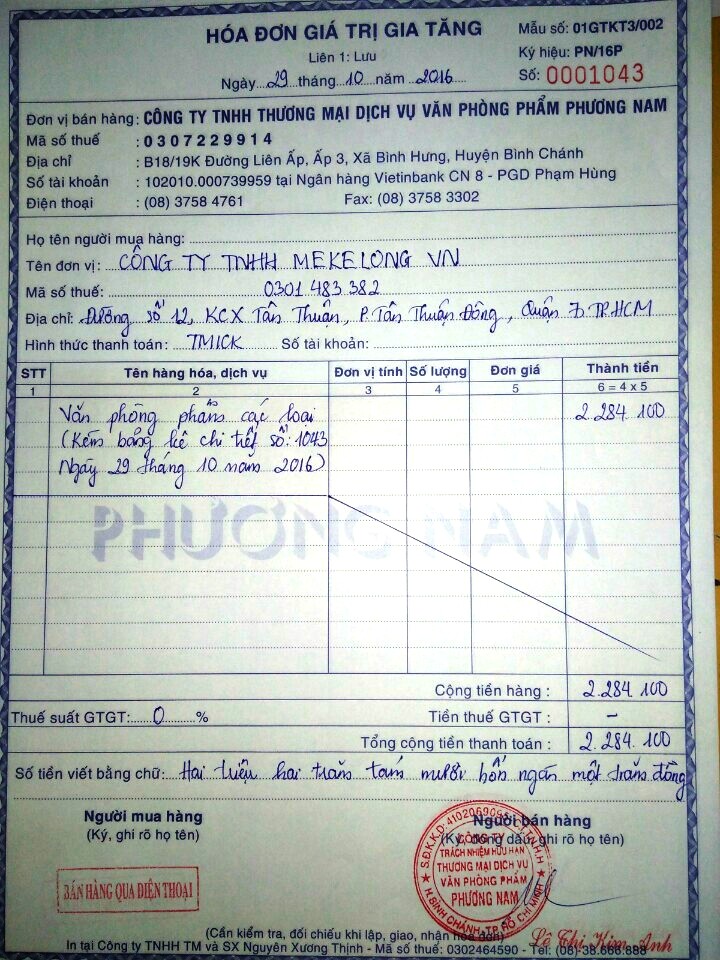 HÓA ĐƠN GIÁ TRỊ GIA TĂNG
Mẫu số: 01GTKT3/002
Liên 1: Lưu
Ký hiệu: PN/16P
Ngày 29 tháng 10 năm 2016
Số: 0001043
Đơn vị bán hàng: CÔNG TY TNHH THƯƠNG MẠI DỊCH VỤ VĂN PHÒNG PHẨM PHƯƠNG NAM
Mã số thuế : 0307229914
Địa chỉ : B18/19K Đường Liên Ấp, Ấp 3, Xã Bình Hưng, Huyện Bình Chánh
Số tài khoản : 102010.000739959 tại Ngân hàng Vietinbank CN 8 - PGD Phạm Hùng
Điện thoại : (08) 3758 4761 Fax: (08) 3758 3302
Họ tên người mua hàng:
Tên đơn vị: CÔNG TY TNHH MEKELONG VN
Mã số thuế: 0301 483 382
Địa chỉ: Đường số 12, KCX Tân Thuận, P. Tân Thuận Đông, Quận 7. TP.HCM
Hình thức thanh toán: TM/CK Số tài khoản:
STT Tên hàng hóa, dịch vụ Đơn vị tính Số lượng Đơn giá Thành tiền
1 2 3 4 5 6 = 4 x 5
Văn phòng phẩm các loại 2.284.100
(Kèm bảng kê chi tiết số: 1043
Ngày 29 tháng 10 năm 2016)
PHƯƠNG NAM
Cộng tiền hàng : 2.284.100
Thuế suất GTGT: 0 % Tiền thuế GTGT : -
Tổng cộng tiền thanh toán : 2.284.100
Số tiền viết bằng chữ: Hai triệu hai trăm tám mươi bốn ngàn một trăm đồng
Người mua hàng Người bán hàng
(Ký, ghi rõ họ tên) (Ký, đóng dấu, ghi rõ họ tên)
CÔNG TY
TRÁCH NHIỆM HỮU HẠN
THƯƠNG MẠI DỊCH VỤ
VĂN PHÒNG PHẨM
PHƯƠNG NAM
H. BÌNH CHÁNH - TP. HỒ CHÍ MINH
BÁN HÀNG QUA ĐIỆN THOẠI
Lê Thị Kim Anh
(Cần kiểm tra, đối chiếu khi lập, giao, nhận hóa đơn)
In tại Công ty TNHH TM và SX Nguyên Xương Thịnh - Mã số thuế: 0302464590 - Tel: (08) 38.666.888